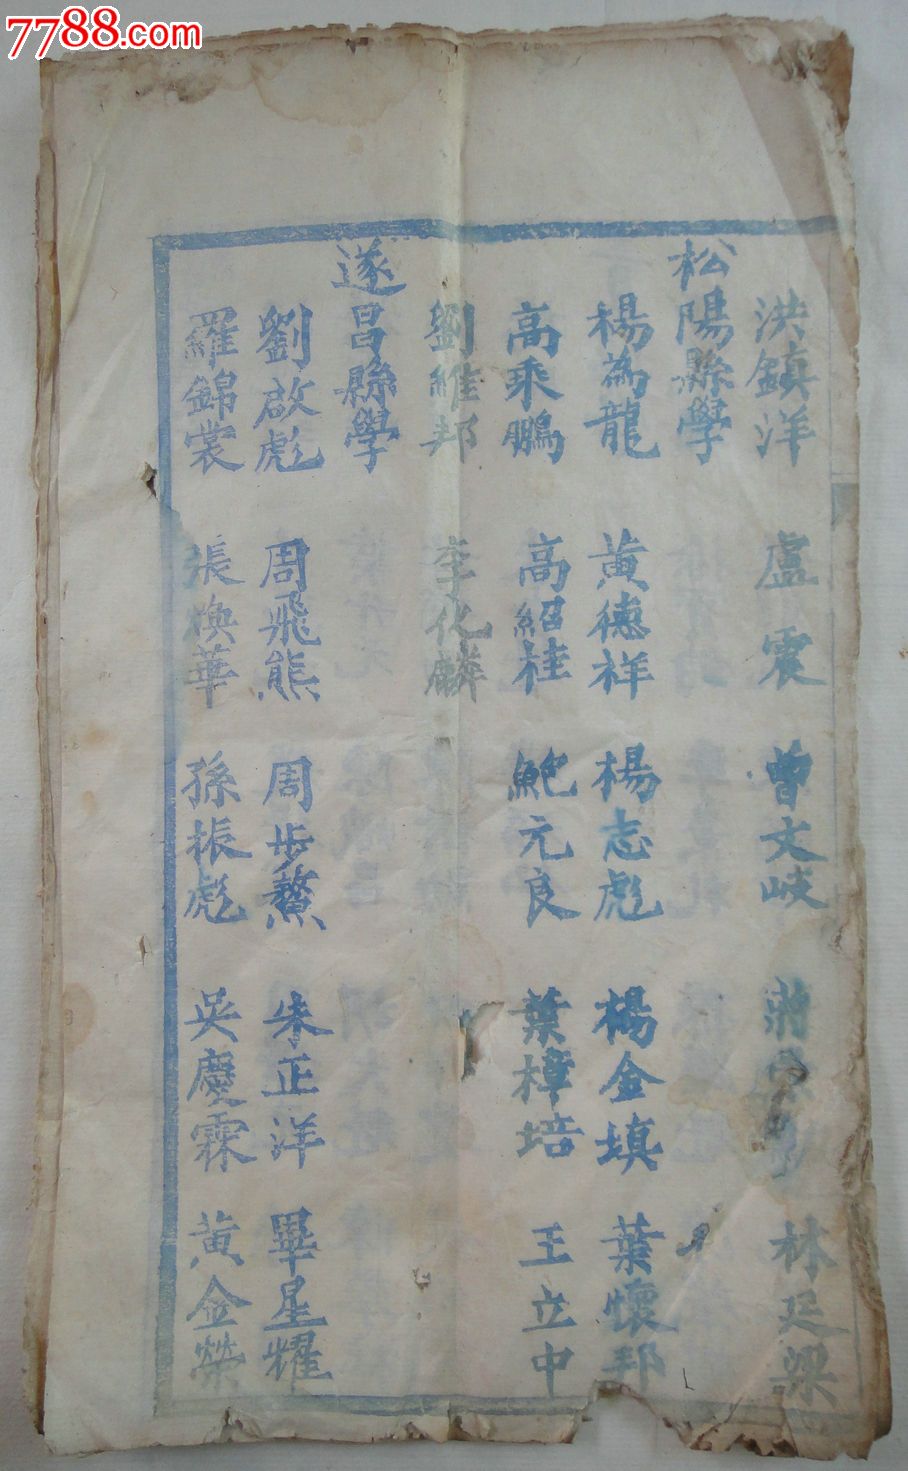 7788.com
洪鎮洋 盧震 曾文岐 蔣 林廷梁
松陽縣學
楊為龍 黃德祥 楊志彪 楊金填 葉懷邦
高乘鵬 高紹桂 鮑元良 葉樟培 王立中
劉維邦 李化麟
遂昌縣學
劉啟彪 周飛熊 周步鰲 朱正洋 畢星耀
羅錦裳 張煥華 孫振彪 吳慶霖 黃金榮